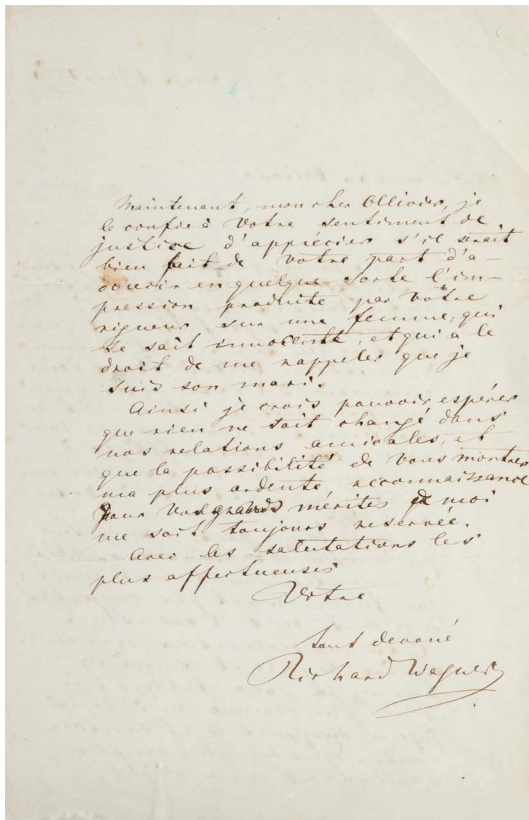 Maintenant, mon cher Ollivier, je
le confie à Votre sentiment de
justice d'apprécier s'il serait
bien fait de votre part d'a-
doucir en quelque sorte l'im-
pression produite par votre
rigueur sur une femme, qui
se sait innocente, et qui a le
droit de me rappeler que je
suis son mari.
Ainsi je crois pouvoir espérer
que rien ne soit changé dans
nos relations amicales, et
que la possibilité de Vous montrer
ma plus ardente reconnaissance
pour Vos grands mérites moi
me soit toujours reservée.
Avec les salutations les
plus affectueuses
Votre
tout devoué
Richard Wagner